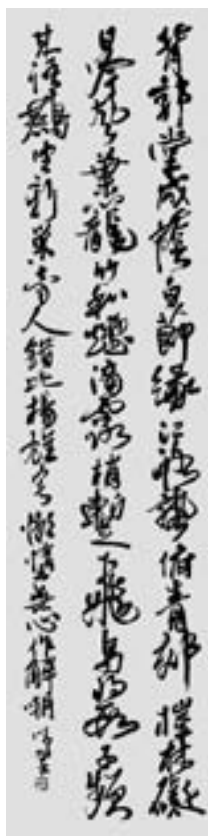 背郭堂成蔭白茆緣江路熟俯青郊榿林礙
日吟風葉籠竹和煙滴露梢暫止飛烏將數子頻
來語燕定新巢旁人錯比楊雄宅懶惰無心作解嘲